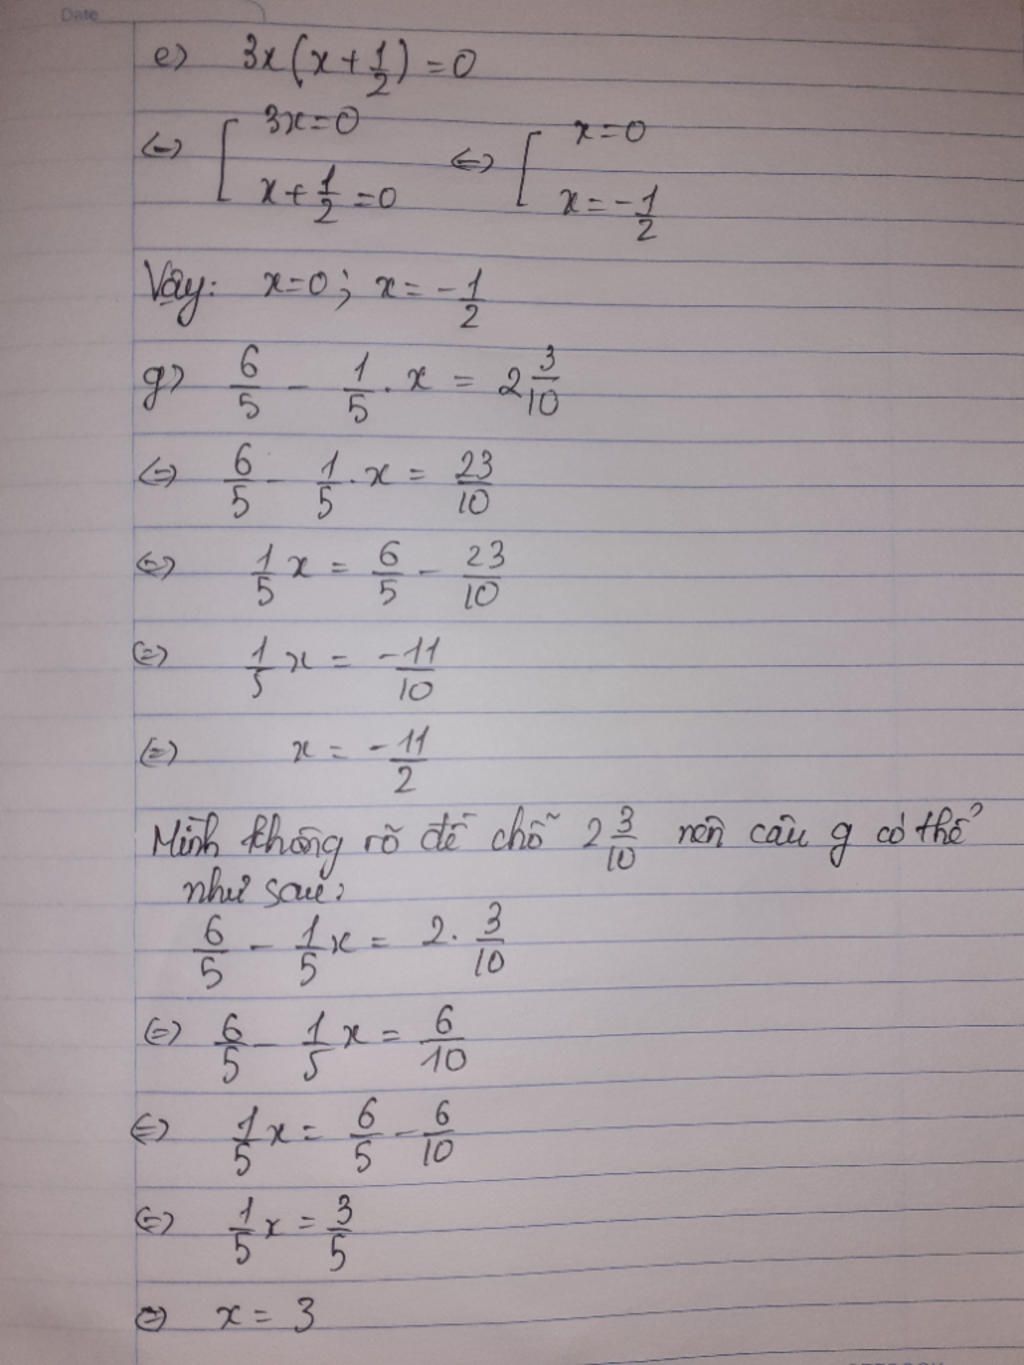 Date
e) 3x(x + 1/2) = 0
⇔ [ 3x = 0 ⇔ [ x = 0
x + 1/2 = 0 x = -1/2
Vậy: x = 0; x = -1/2
g) 6/5 - 1/5 . x = 2 3/10
⇔ 6/5 - 1/5 . x = 23/10
⇔ 1/5 x = 6/5 - 23/10
⇔ 1/5 x = -11/10
⇔ x = -11/2
Mình không rõ đề chỗ 2 3/10 nên câu g có thể
như sau:
6/5 - 1/5 x = 2 . 3/10
⇔ 6/5 - 1/5 x = 6/10
⇔ 1/5 x = 6/5 - 6/10
⇔ 1/5 x = 3/5
⇔ x = 3